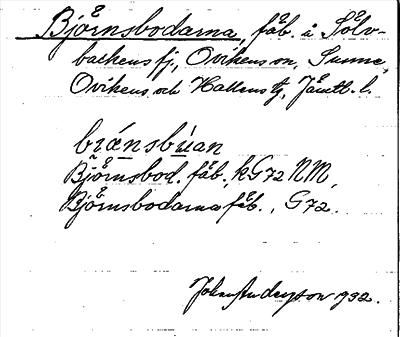 Björnsbodarna, fäb. i Sölv-
backens fj., Ovikens sn, Sunne,
Ovikens och Hallens tg, Jämtl. l.
bránsbúan
Björnsbod. fäb., kG72 NM,
Björnsbodarna fäb., G72.
Johan Anderson 1932.